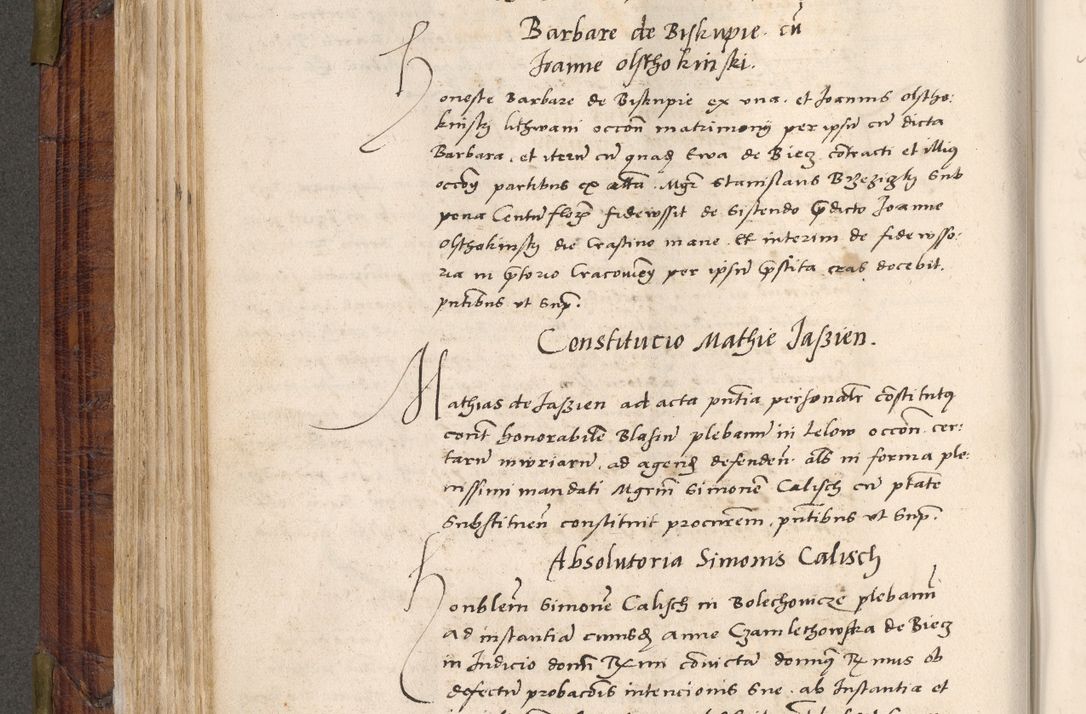 Barbare de Biskupie cū
Joanne olsthokinski.
Honeste Barbare de Biskupie ex una et Joannis olstho:
kinskj lithwani occon matrimonij per ipsū cū dicta
Barbara, et iterū cū quadā Ewa de Biecz cōtracti et illius
occon partibus ex alta Mgr Stanislaus Brzeziczkj sub
pena Centū florn fideiussit de sistendo p̄dicto Joanne
olsthokinskj die Crastino mane et interim de fideiusso:
ria in p̄torio Cracovien per ipsū p̄stita cras docebit.
pntibus ut supr.
Constitucio Mathie Jaszien.
Mathias de Jaszien ad acta pntia personalr cōstitutus
cont honorabilē Blasiū plebanū in Lelow occon cer:
tarū iniuriarū, ad agend defenden als in forma ple:
nissimi mandati Mgrm Simonem Calisch cū ptate
substituen constituit procurem, pntibus ut supr.
Absolutoria Simonis Calisch
Honblem Simonē Calisch in Bolechowicze plebanū
ad instantiā cuiusd Anne Czamlethowska de Biecz
in Judicio domi Rx mi cōvictā domng Rx mus ob
defectū probacōis intencionis sue ab Instantia et